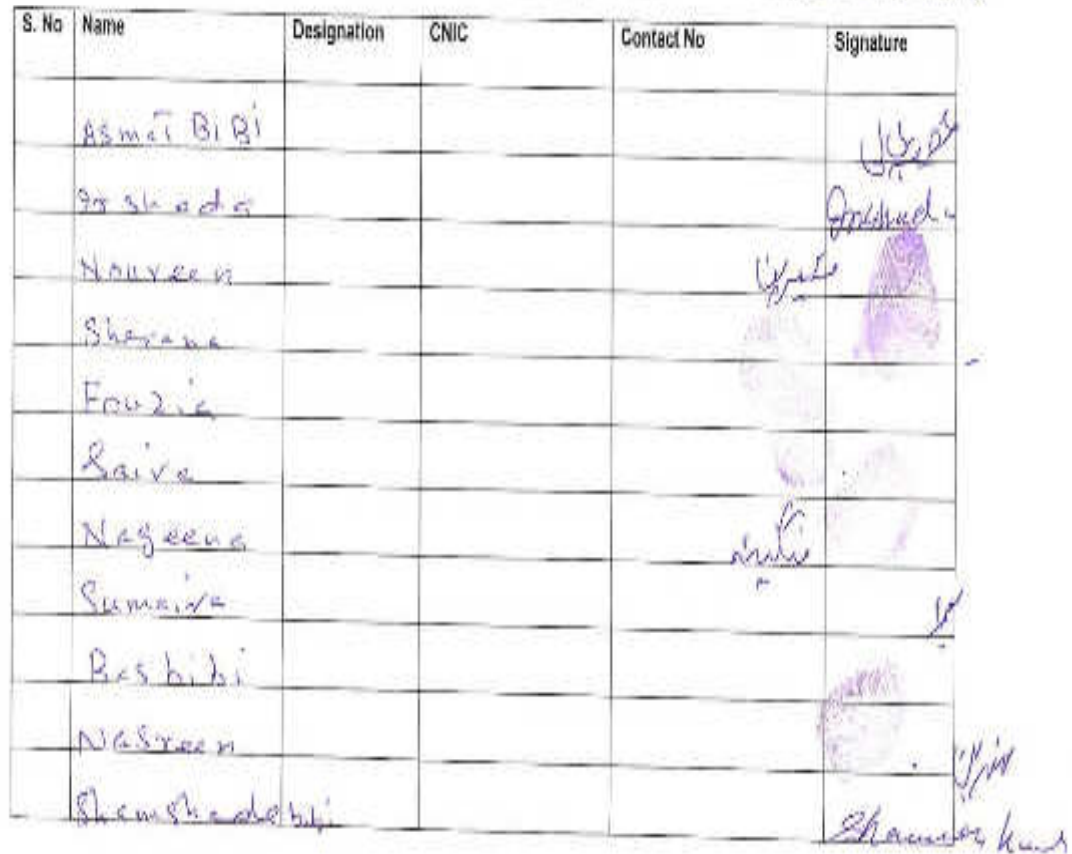 S. No Name Designation CNIC Contact No Signature
Asmat BiBi
Irshada Irshad
Noureen
Sherana
Fouzia
Saiva
Nageena نگینہ
Sumaiya
Bas bibi
Nasreen نسرین
Shamshade bibi